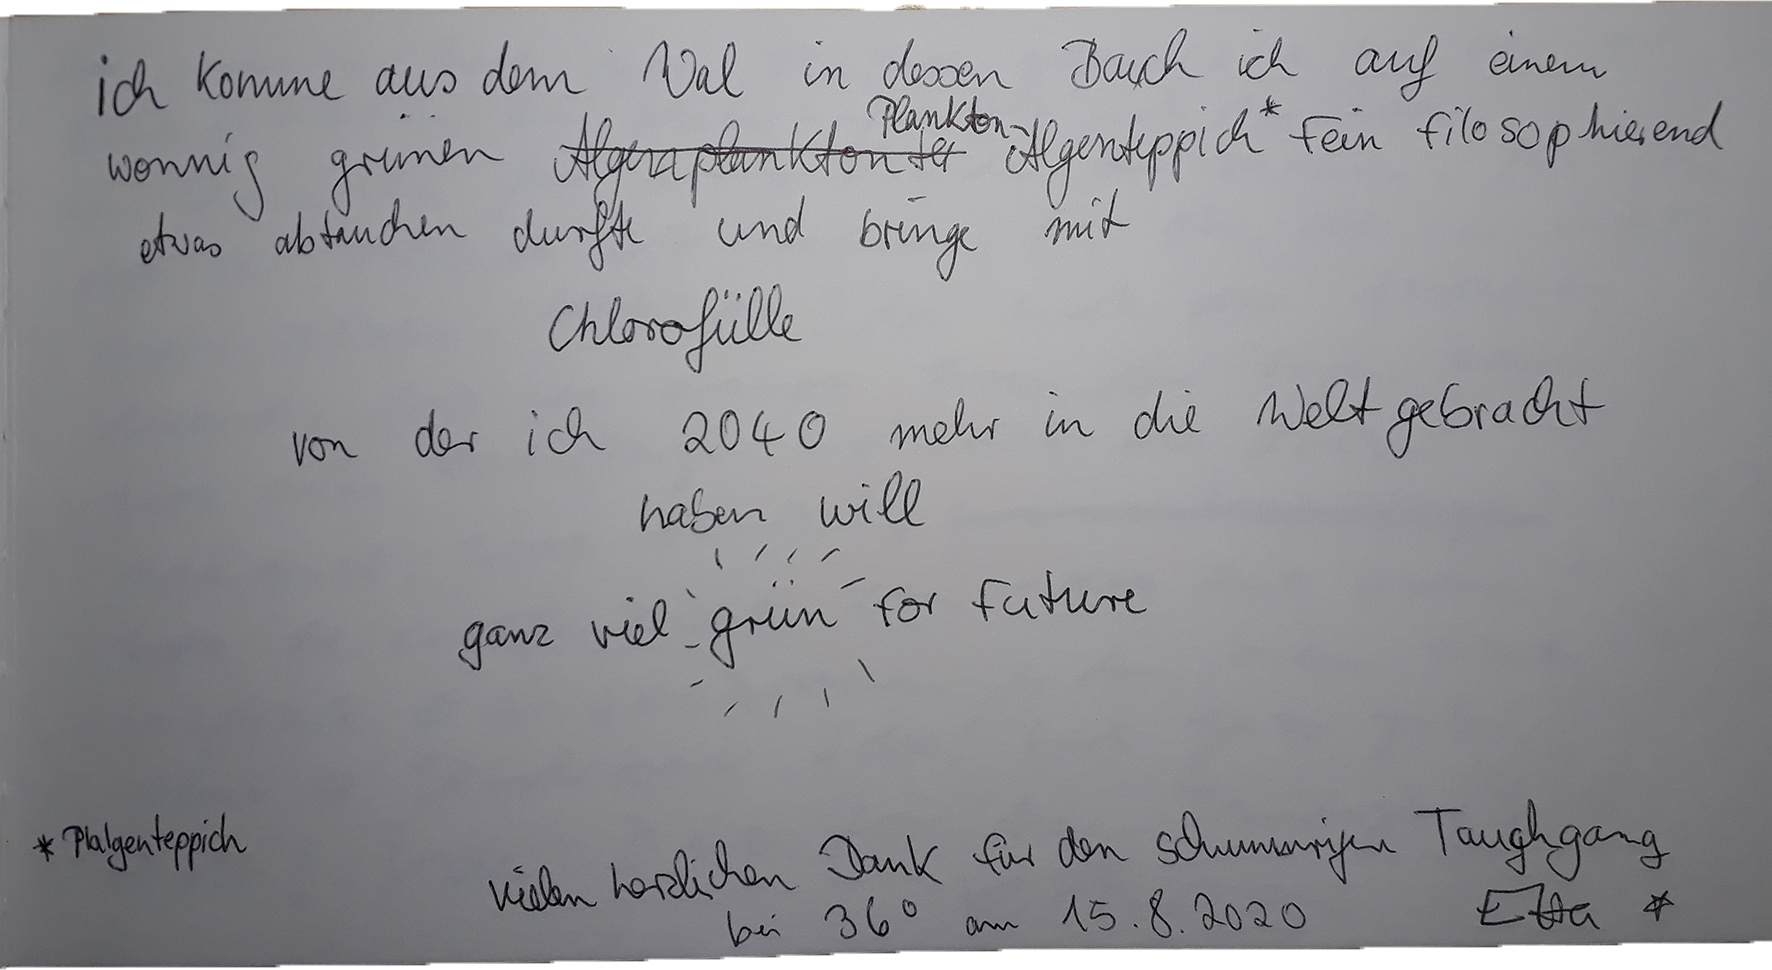 ich komme aus dem Wal in dessen Bauch ich auf einem
wonnig grünen Algenplankton ter Plankton-Algenteppich* fein filosophierend
etwas abtauchen durfte und bringe mit
Chlorofülle
von der ich 2040 mehr in die Welt gebracht
haben will
ganz viel grün for future
* Plalgenteppich
vielen herzlichen Dank für den schummrigen Taughgang
bei 36° am 15.8.2020 Etta *